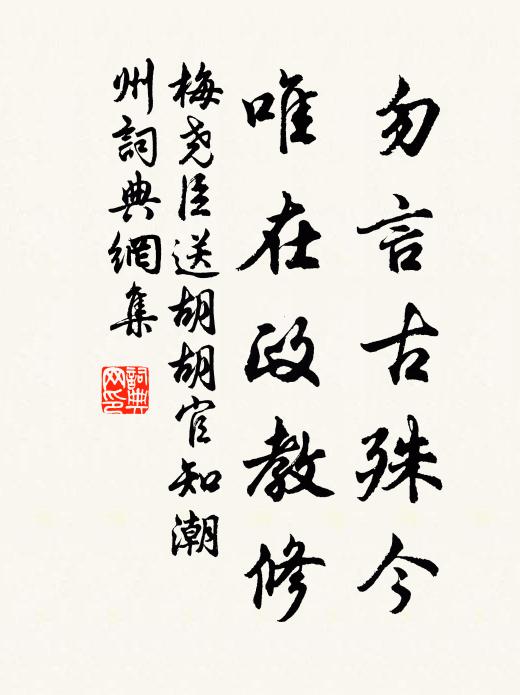 勿言古殊今
唯在政教修
梅尧臣送胡胡官知潮
州詞典網集
詞典網印